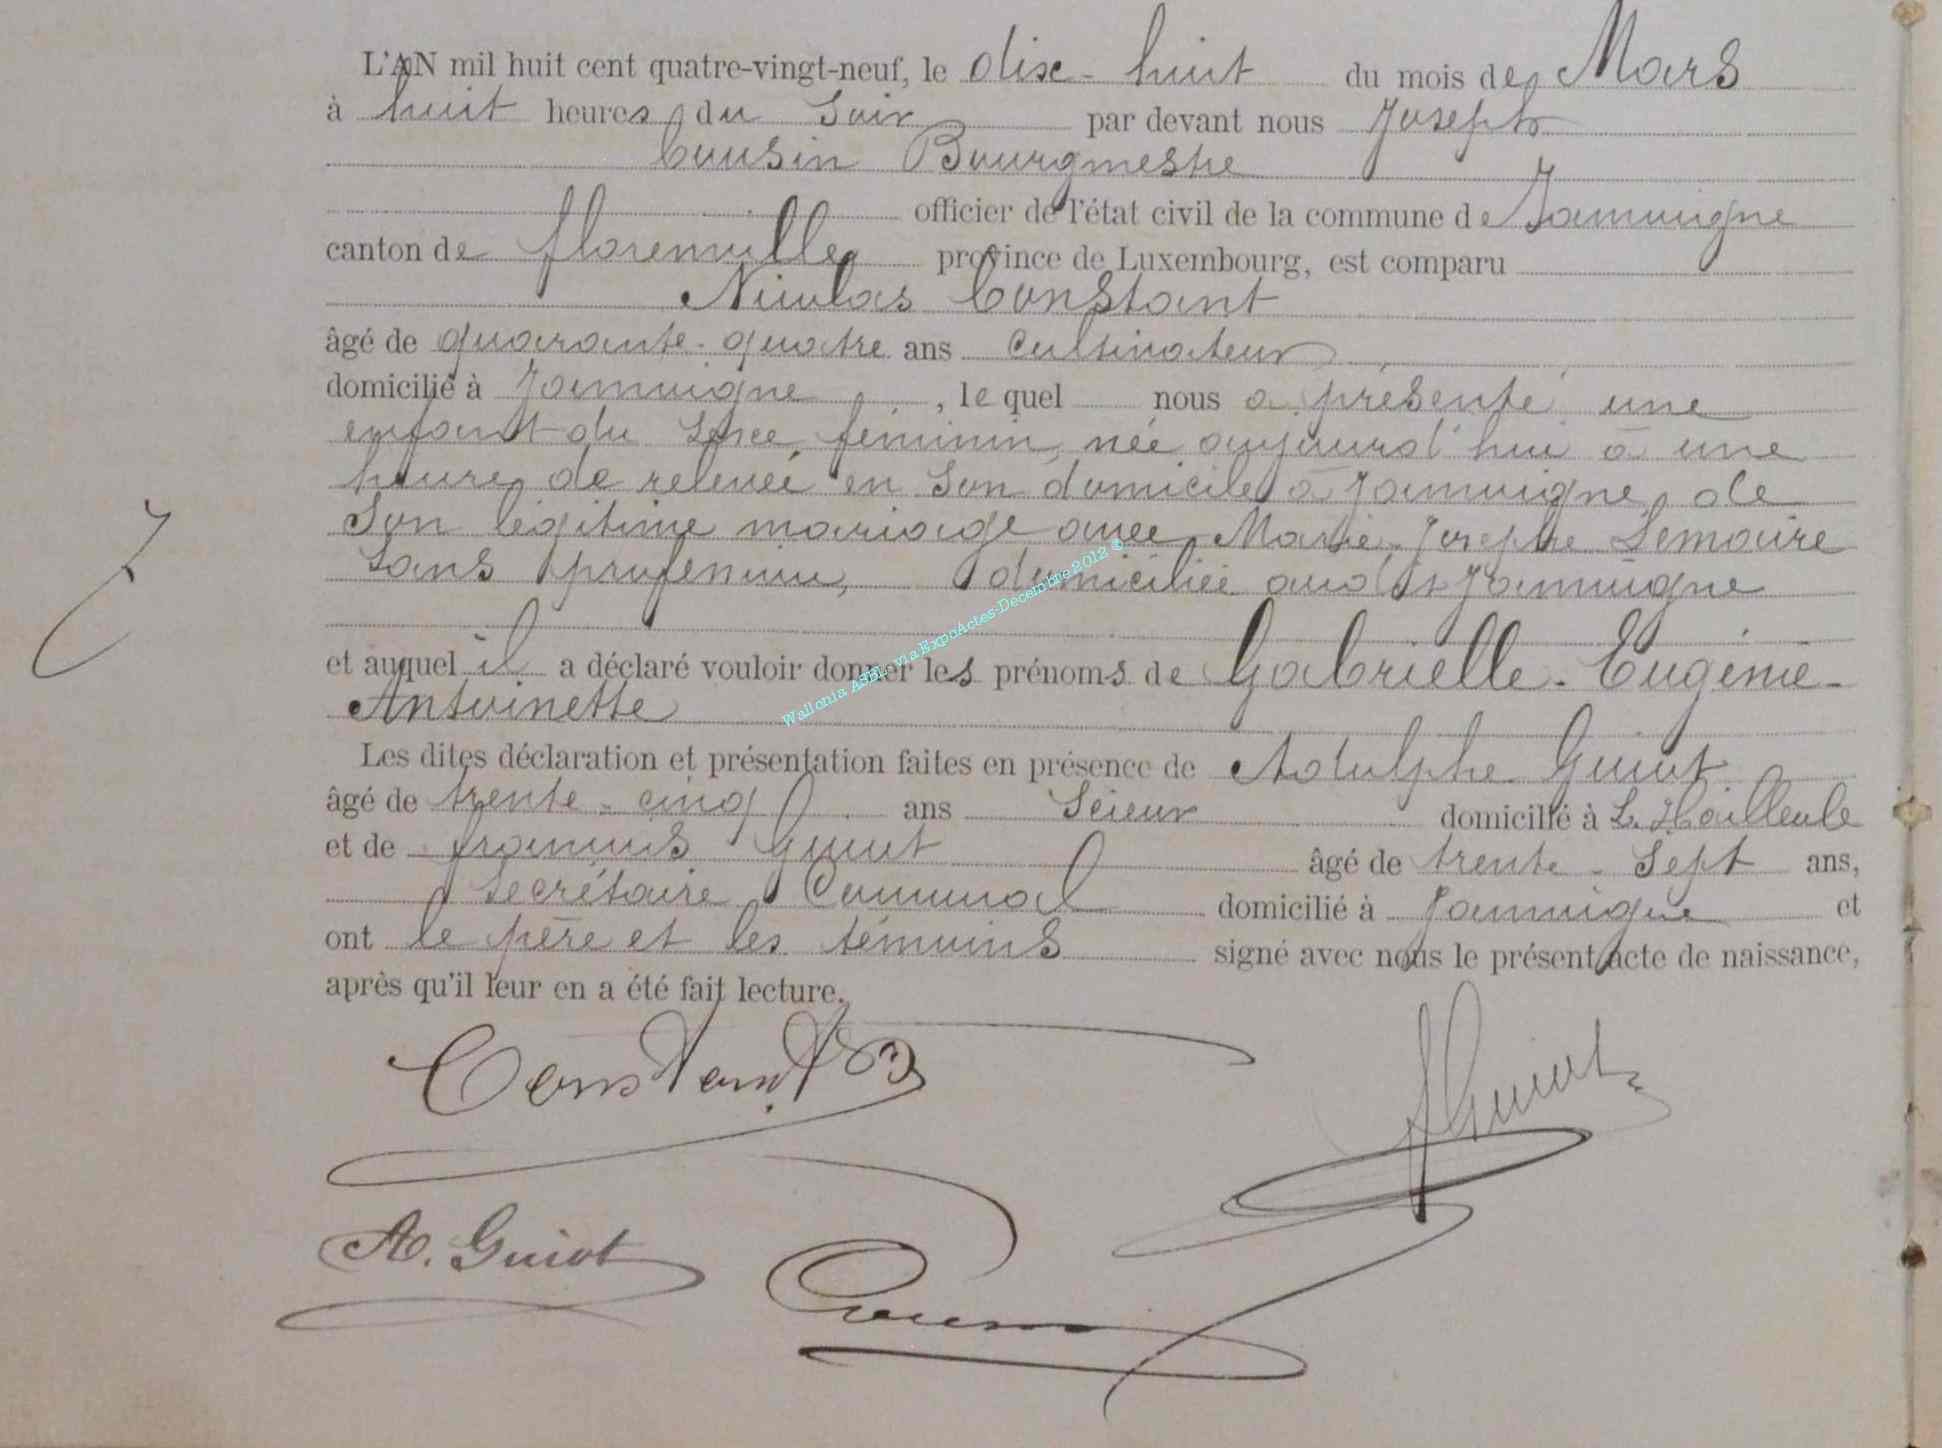 L'AN mil huit cent quatre-vingt-neuf, le dix-huit du mois de Mars
à huit heures du Soir par devant nous Joseph
Cousin Bourgmestre
officier de l'état civil de la commune de Jamoigne
canton de florenville province de Luxembourg, est comparu
Nicolas Constant
âgé de quarante-quatre ans cultivateur
domicilié à Jamoigne, le quel nous a présenté une
enfant du Sexe féminin, née aujourd'hui à une
heure de relevée en Son domicile à Jamoigne, de
Son légitime mariage avec Marie-Josèphe Lemaire
Sans profession, domiciliée audit Jamoigne
et auquel il a déclaré vouloir donner les prénoms de Gabrielle-Eugénie-
Antoinette
Les dites déclaration et présentation faites en présence de Adolphe Guiot
âgé de trente-cinq ans Scieur domicilié à
et de françois Guiot âgé de trente-Sept ans,
Secrétaire Communal domicilié à Jamoigne et
ont le père et les témoins signé avec nous le présent acte de naissance,
après qu'il leur en a été fait lecture.
Constant
AGuiot
A. Guiot
Cousin
Wallonia ASBL via ExpoActes-Decembre 2012 ©